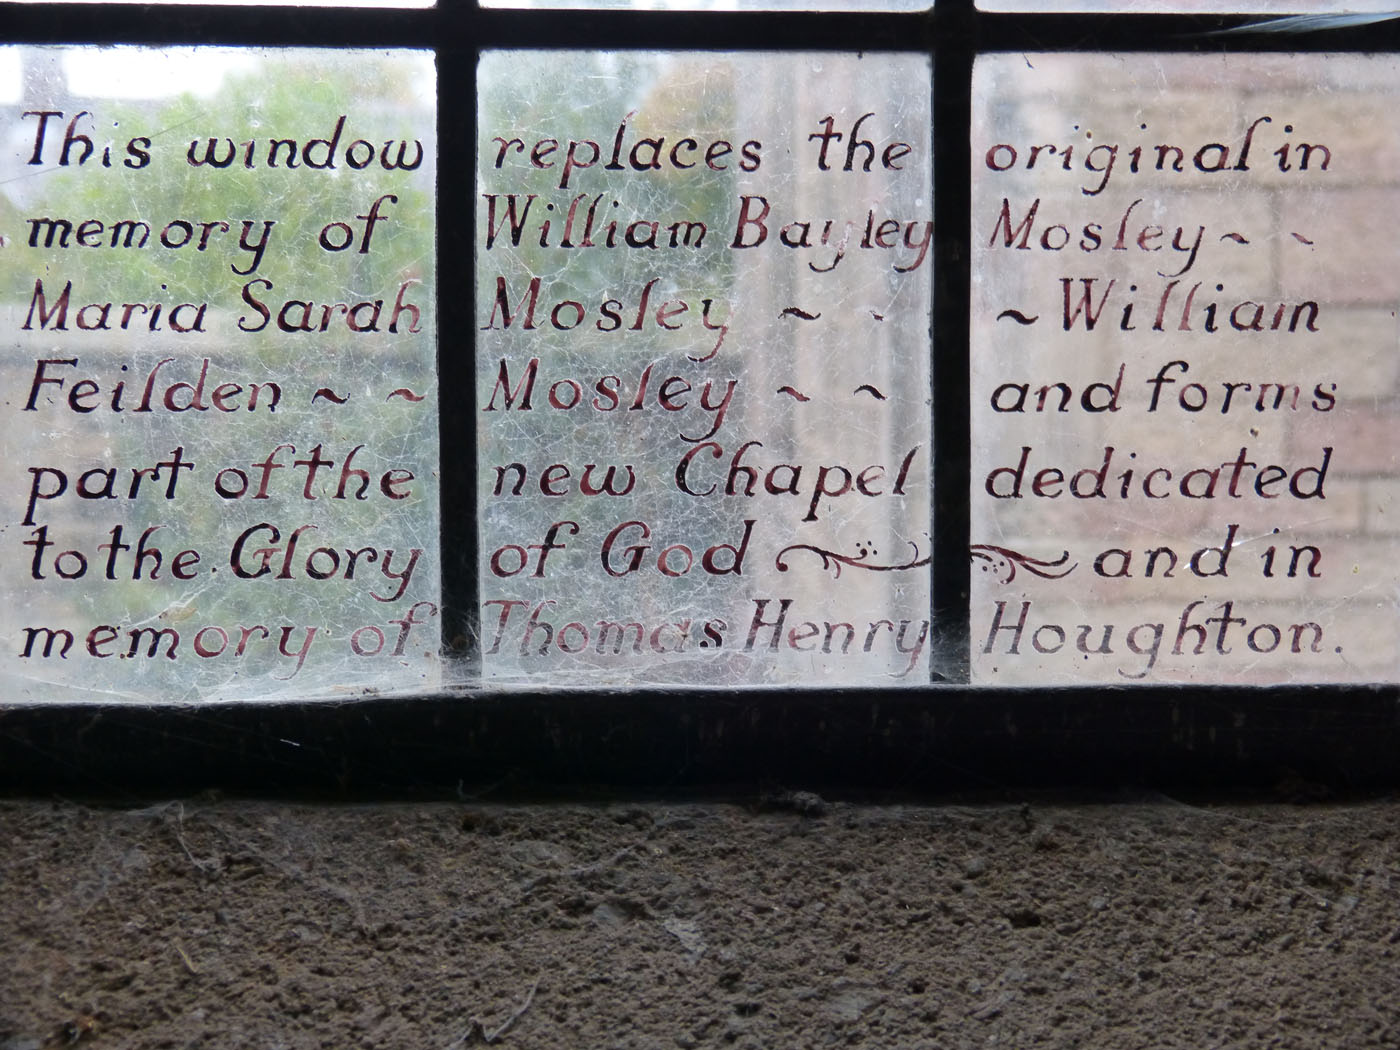 This window replaces the original in
memory of William Bayley Mosley ~ ~
Maria Sarah Mosley ~ ~ ~ William
Feilden ~ ~ Mosley ~ ~ and forms
part of the new Chapel dedicated
to the Glory of God and in
memory of Thomas Henry Houghton.